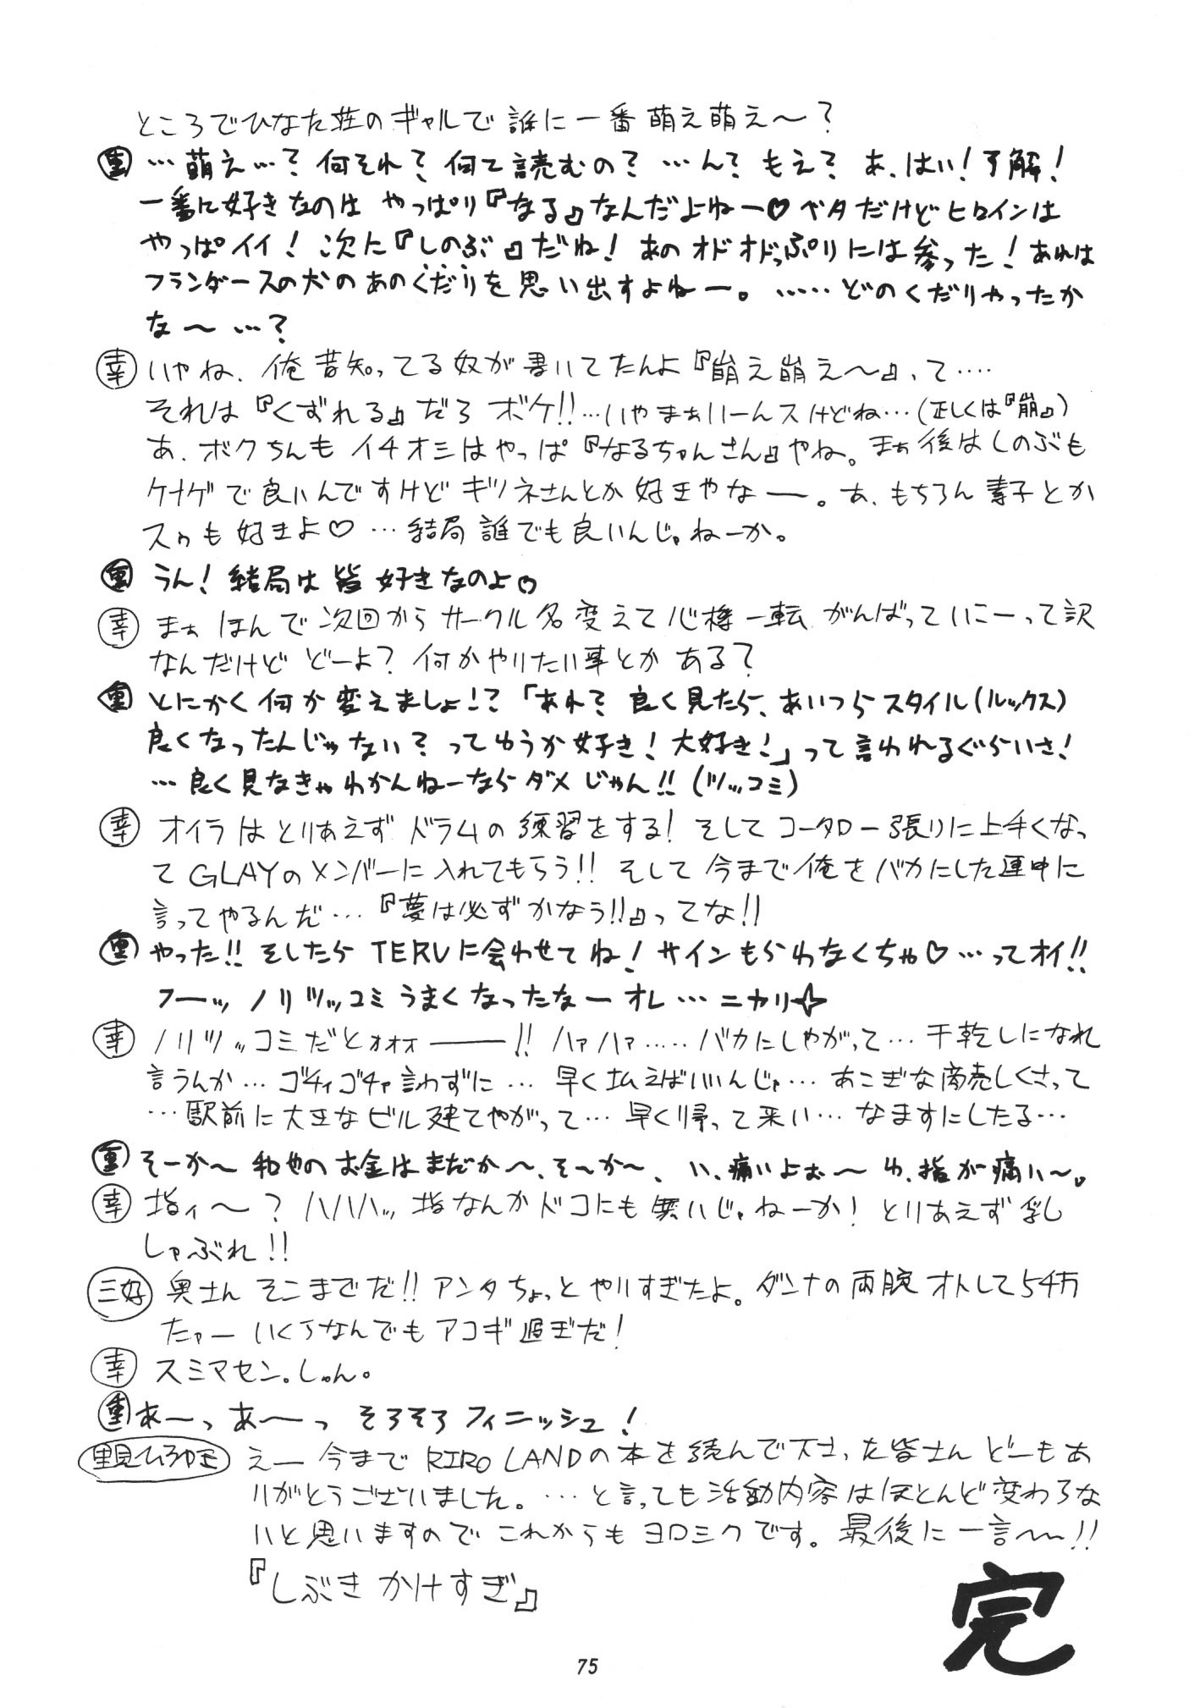 ところでひなた荘のギャルで誰に一番萌え萌え〜？
…萌え…？何それ？何て読むの？…ん？もえ？あ、はい！了解！
一番に好きなのはやっぱり『なる』なんだよねー♡ベタだけどヒロインは
やっぱイイ！次に『しのぶ』だね！あのオドオドっぷりには参った！あれは
フランダースの犬のあのくだりを思い出すよねー。……どのくだりやったか
な〜…？
幸 いやね、俺昔知ってる奴が書いてたんよ『崩え崩え〜』、て‥‥
それは『くずれる』だろボケ!!…いやまぁいーんスけどね…(正しくは『崩』)
あ、ボクちんもイチオシはやっぱ『なるちゃんさん』やね。まぁ後はしのぶも
ケナゲで良いんですけどキツネさんとか好きやなー。あ、もちろん素子とか
スゥも好きよ♡…結局誰でも良いんじゃねーか。
うん！結局は皆好きなのよ♡
幸 まぁほんで次回からサークル名変えて心機一転がんばっていこーって訳
なんだけどどーよ？何かやりたい事とかある？
とにかく何か変えましょ！？「あれ？良く見たら、あいつらスタイル(ルックス)
良くなったんじゃない？ってゆうか好き！大好き！」って言われるぐらいさ！
…良く見なきゃわかんねーならダメじゃん!!(ツッコミ)
幸 オイラはとりあえずドラムの練習をする！そしてコータロー張りに上手くなっ
てGLAYのメンバーに入れてもらう!!そして今まで俺をバカにした連中に
言ってやるんだ…『夢は必ずかなう!!』ってな!!
やった!!そしたらTERUに会わせてね！サインもらわなくちゃ♡…ってオイ!!
フーッノリツッコミうまくなったなーオレ…ニカリ☆
幸 ノリツッコミだとォォォ――!!ハァハァ……バカにしやがって…干乾しになれ
言うんか…ゴチャゴチャ言わずに…早く払えばいいんじゃ…あこぎな商売しくさって
…駅前に大きなビル建てやがって…早く帰って来い…なますにしたる…
そーか〜和也のお金はまだか〜、そ〜か〜、い、痛いよぉ〜ゆ、指が痛い〜。
幸 指ィ〜？ハハハッ、指なんかドコにも無いじゃねーか！とりあえず乳
しゃぶれ!!
三好 奥さんそこまでだ!!アンタちょっとやりすぎたよ。ダンナの両腕オトして5千万
たァーいくらなんでもアコギ過ぎだ！
幸 スミマセン。しゅん。
あーっあ〜っそろそろフィニッシュ！
里見ひろゆき えー今までRIRO LANDの本を読んで下さった皆さんどーもあ
りがとうございました。…と言っても活動内容はほとんど変わらな
いと思いますのでこれからもヨロシクです。最後に一言〜!!
『しぶきかけすぎ』
完
75